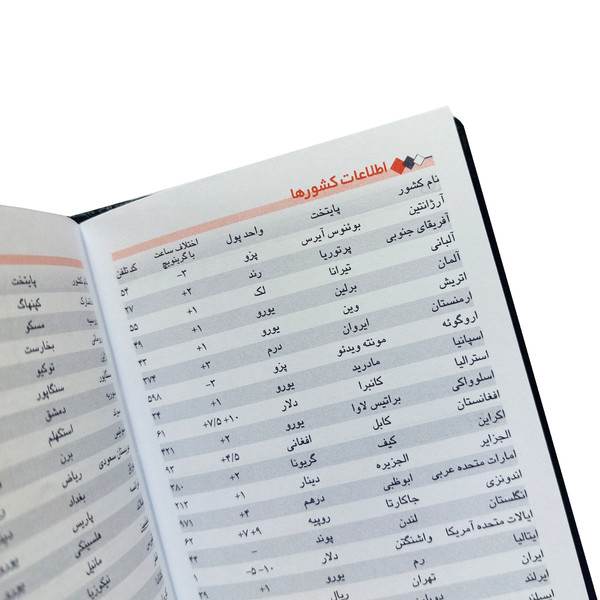 اطلاعات کشورها
نام کشور پایتخت واحد پول اختلاف ساعت با گرینویچ کد تلفن
آرژانتین بوئنوس آیرس پزو ۳- ۵۴
آفریقای جنوبی پرتوریا رند ۲+ ۲۷
آلبانی تیرانا لک ۱+ ۵۵
آلمان برلین یورو ۱+ ۴۹
اتریش وین یورو ۱+ ۴۳
ارمنستان ایروان درم ۳+ ۳۷۴
اروگوئه مونته ویدئو پزو ۳- ۵۹۸
اسپانیا مادرید یورو ۱+ ۳۴
استرالیا کانبرا دلار ۱۰+ ۷/۵+ ۶۱
اسلوواکی براتیس لاوا یورو ۲+ ۴۲۱
افغانستان کابل افغانی ۴/۵+ ۹۳
اکراین کیف گریونا ۲+ ۳۸۰
الجزایر الجزیره دینار ۱+ ۲۱۳
امارات متحده عربی ابوظبی درهم ۴+ ۹۷۱
اندونزی جاکارتا روپیه ۹+ ۷+ ۶۲
انگلستان لندن پوند - ۴۴
ایالات متحده آمریکا واشنگتن دلار ۱۰- ۵- ۱
ایتالیا رم یورو ۱+ ۳۹
ایران تهران ریال
ایرلند
ایسلند
پایتخت
کپنهاگ
مسکو
بخارست
توکیو
سنگاپور
دمشق
استکهلم
برن
ریاض
بغداد
پاریس
هلسینکی
مانیل
نیکوزیا